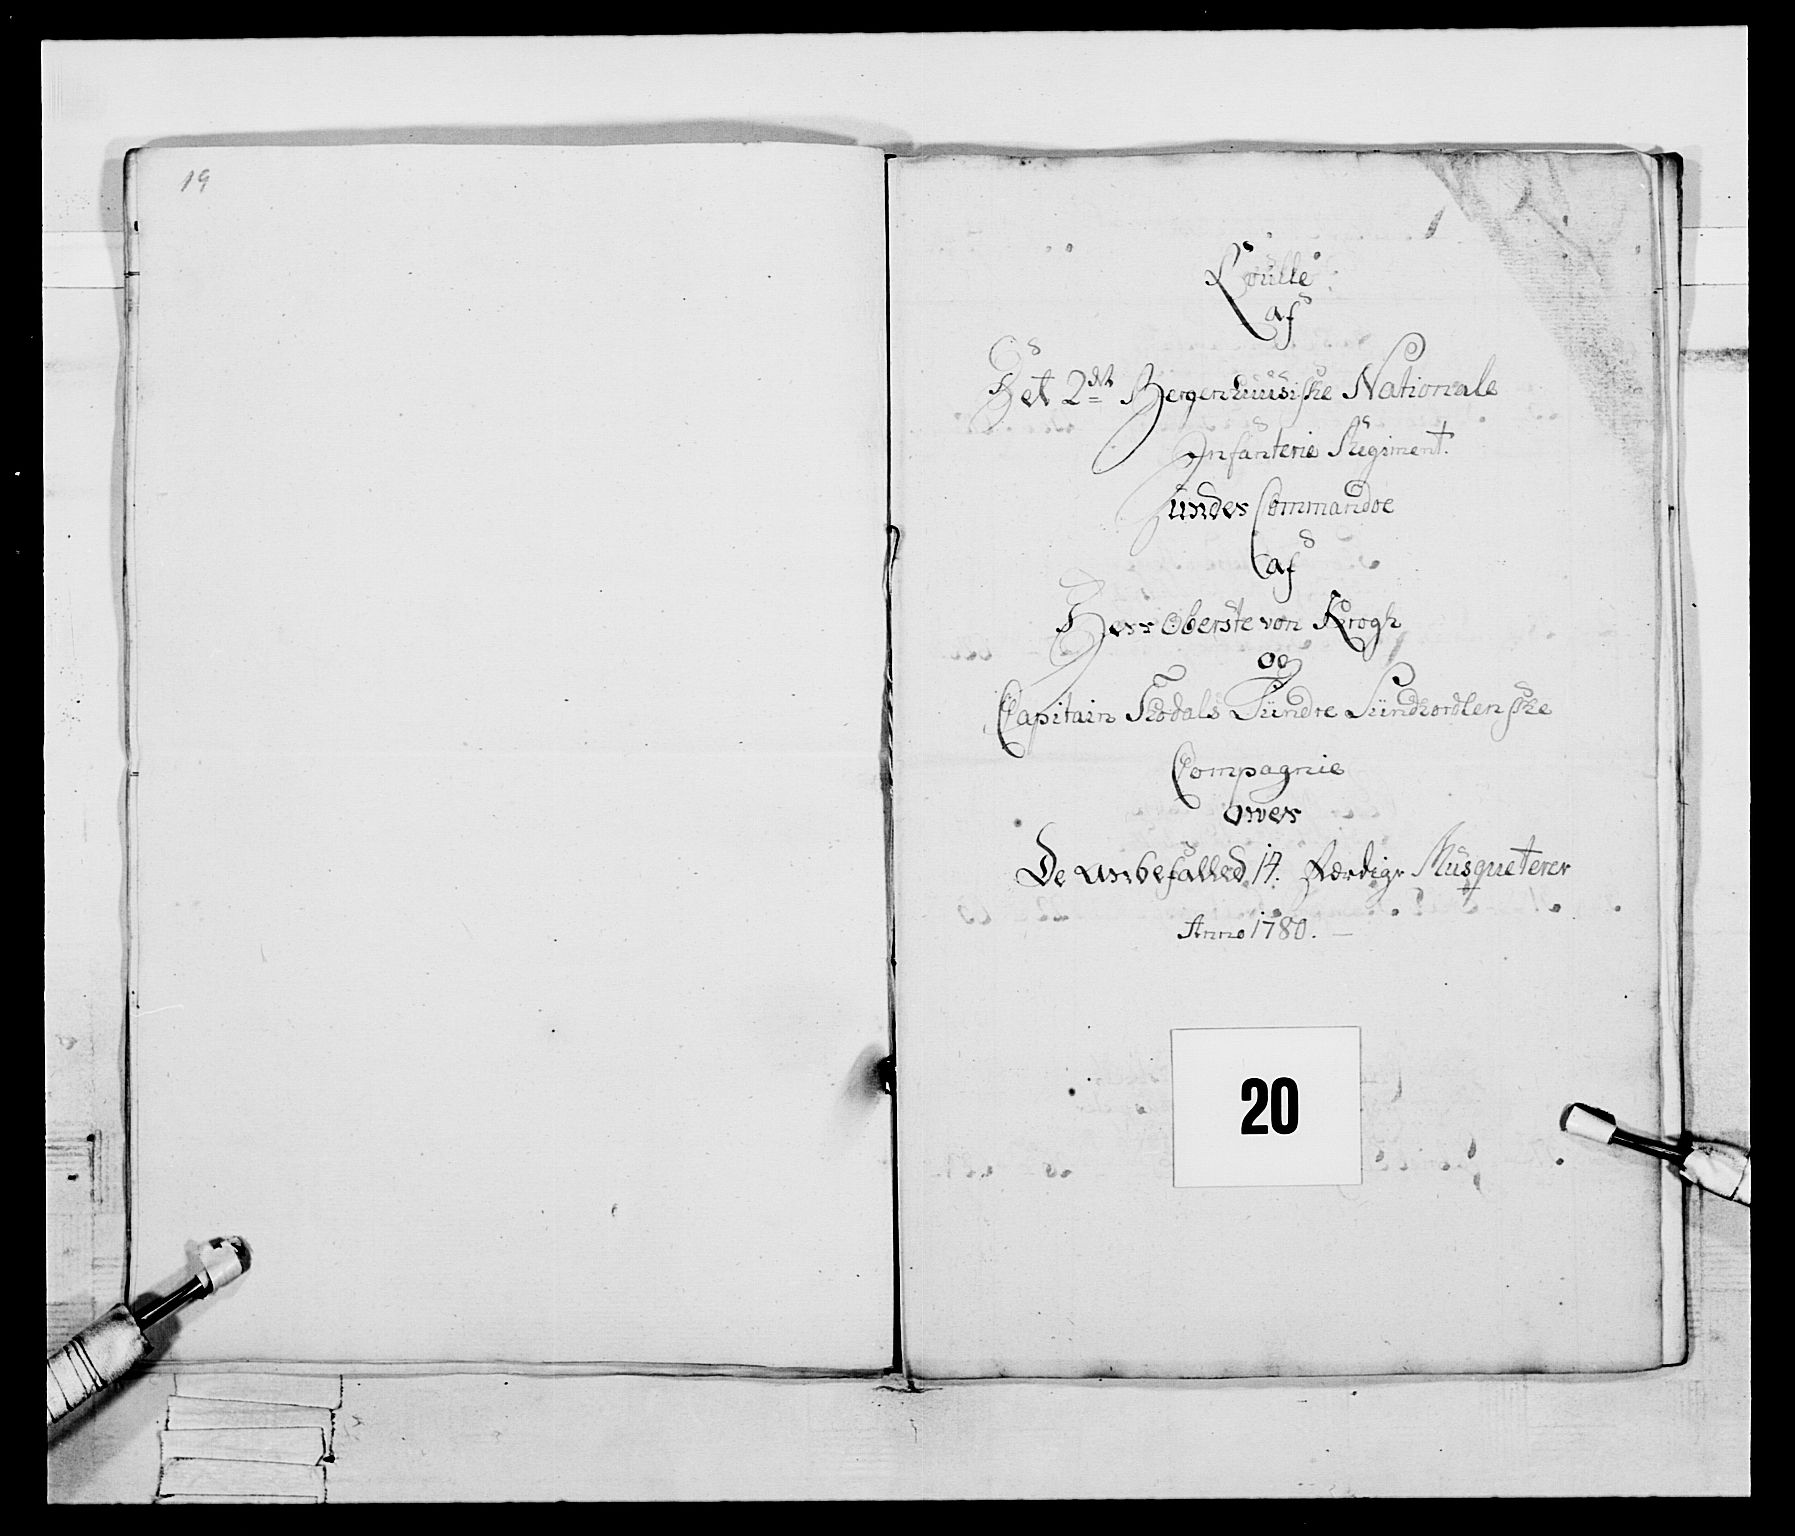 19
Roulle
af
Det 2det Bergenhuusiske Nationale
Infanterie Regiment.
under Commandoe
af
Herr Oberste von Krogh
og
Capitain Skodals Sundre Sundhordlenske
Compagnie
over
De anbefalled 14. færdige Musqueterer
Anno 1780.
20